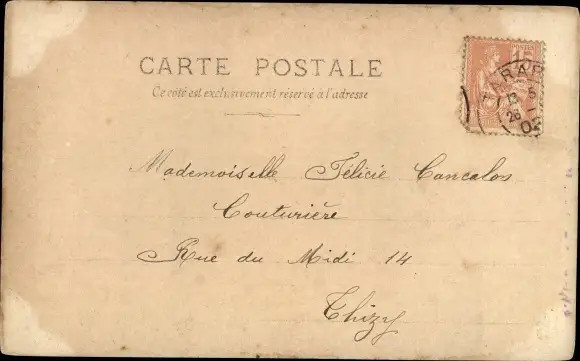 CARTE POSTALE
Ce côté est exclusivement réservé à l'adresse
POSTES
15
Mademoiselle Félicie Cancalos
Couturière
Rue du Midi 14
Thizy